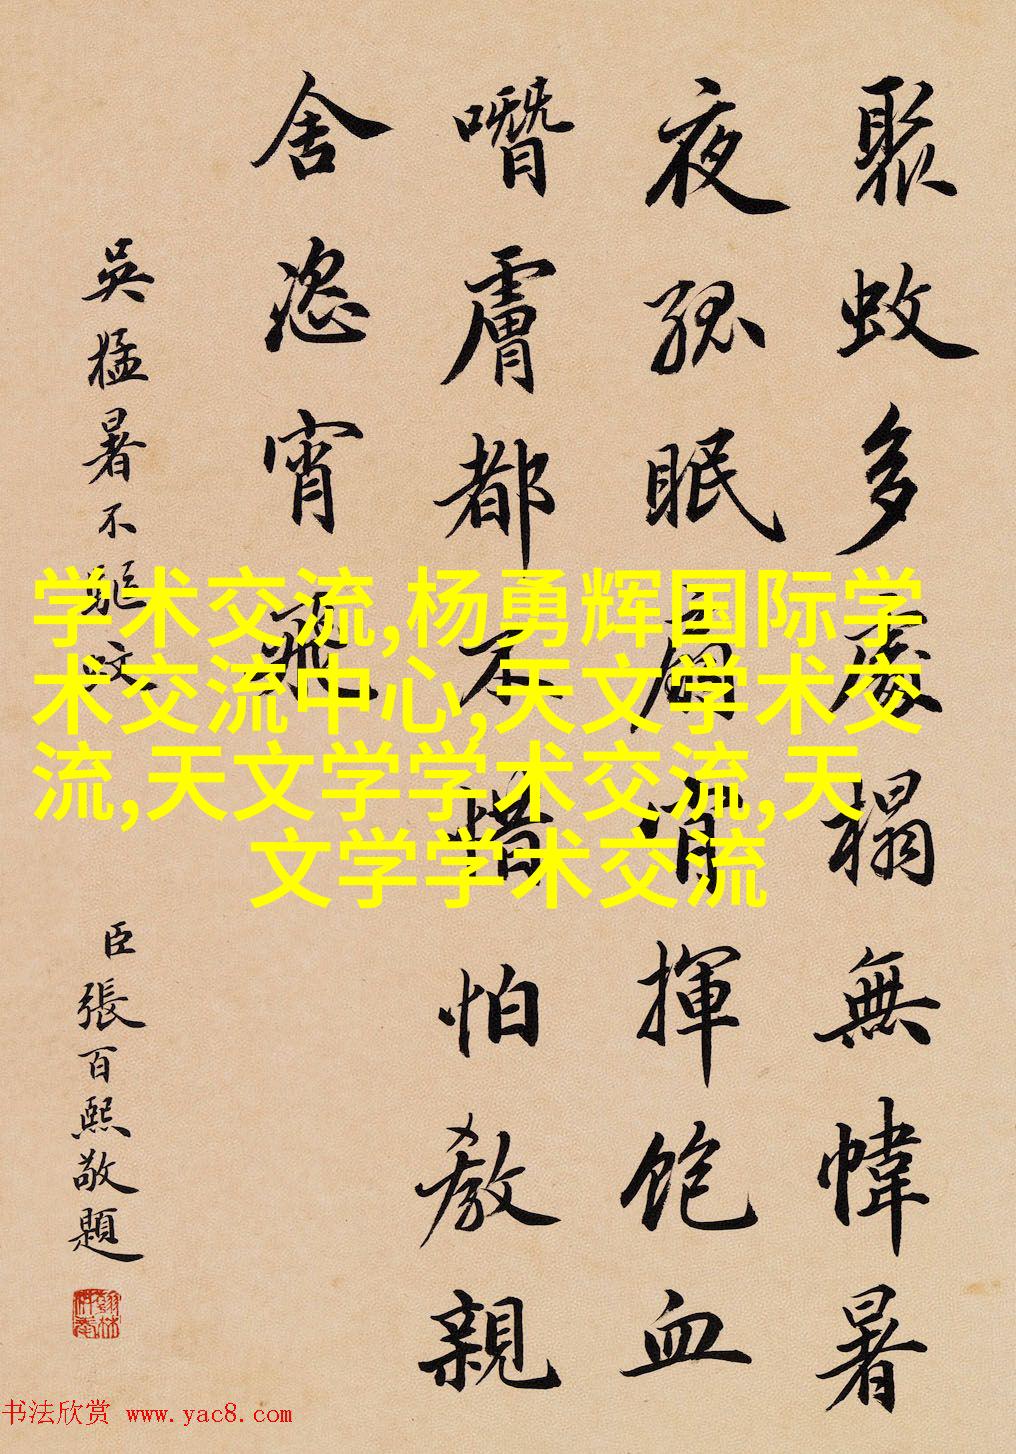 聚蚊多處榻無幃暑
夜孤眠扇肯揮飽血
噆膚都不惜怕教親
舍恣宵飛
吳猛暑不驅蚊
臣張百熙敬題
学术交流,杨勇辉国际学
术交流中心,天文学术交
流,天文学学术交流,天
文学学术交流
书法欣赏 www.yac8.com